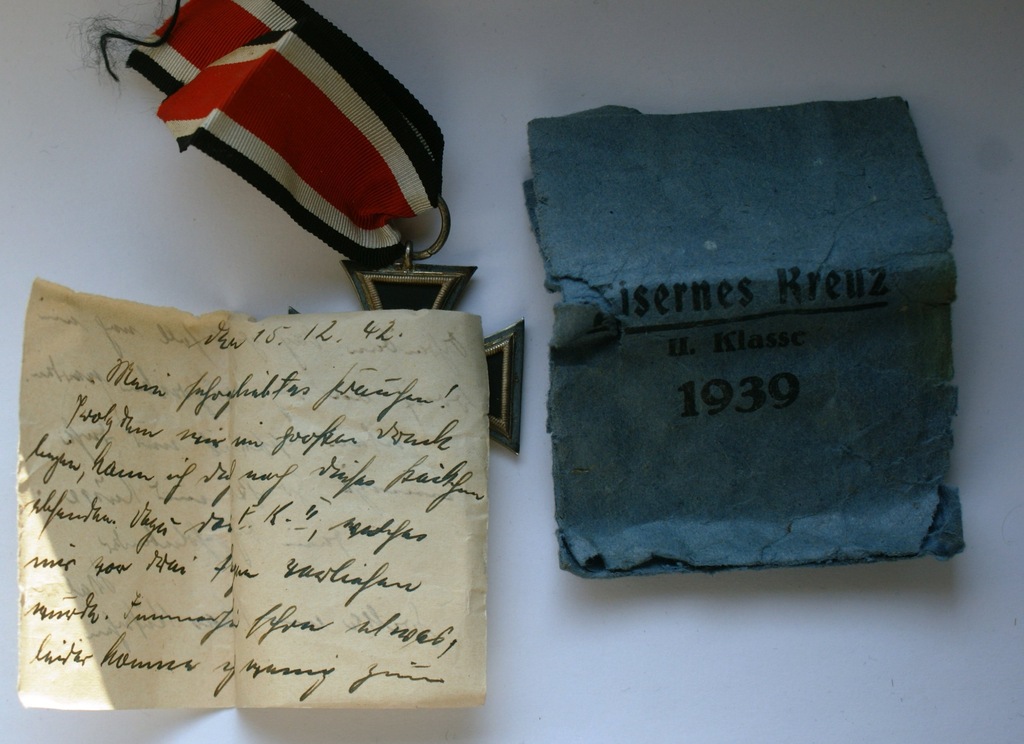 den 15. 12. 42.
Mein sehrgeliebtes Frauchen!
Trotzdem wir im großen Druck
liegen, kann ich dir noch dieses Päckchen
absenden. Dazu das E. K. II, welches
mir vor drei Tagen verliehen
wurde. Immerhin schon etwas,
leider komme ich wenig zum
Eisernes Kreuz
II. Klasse
1939